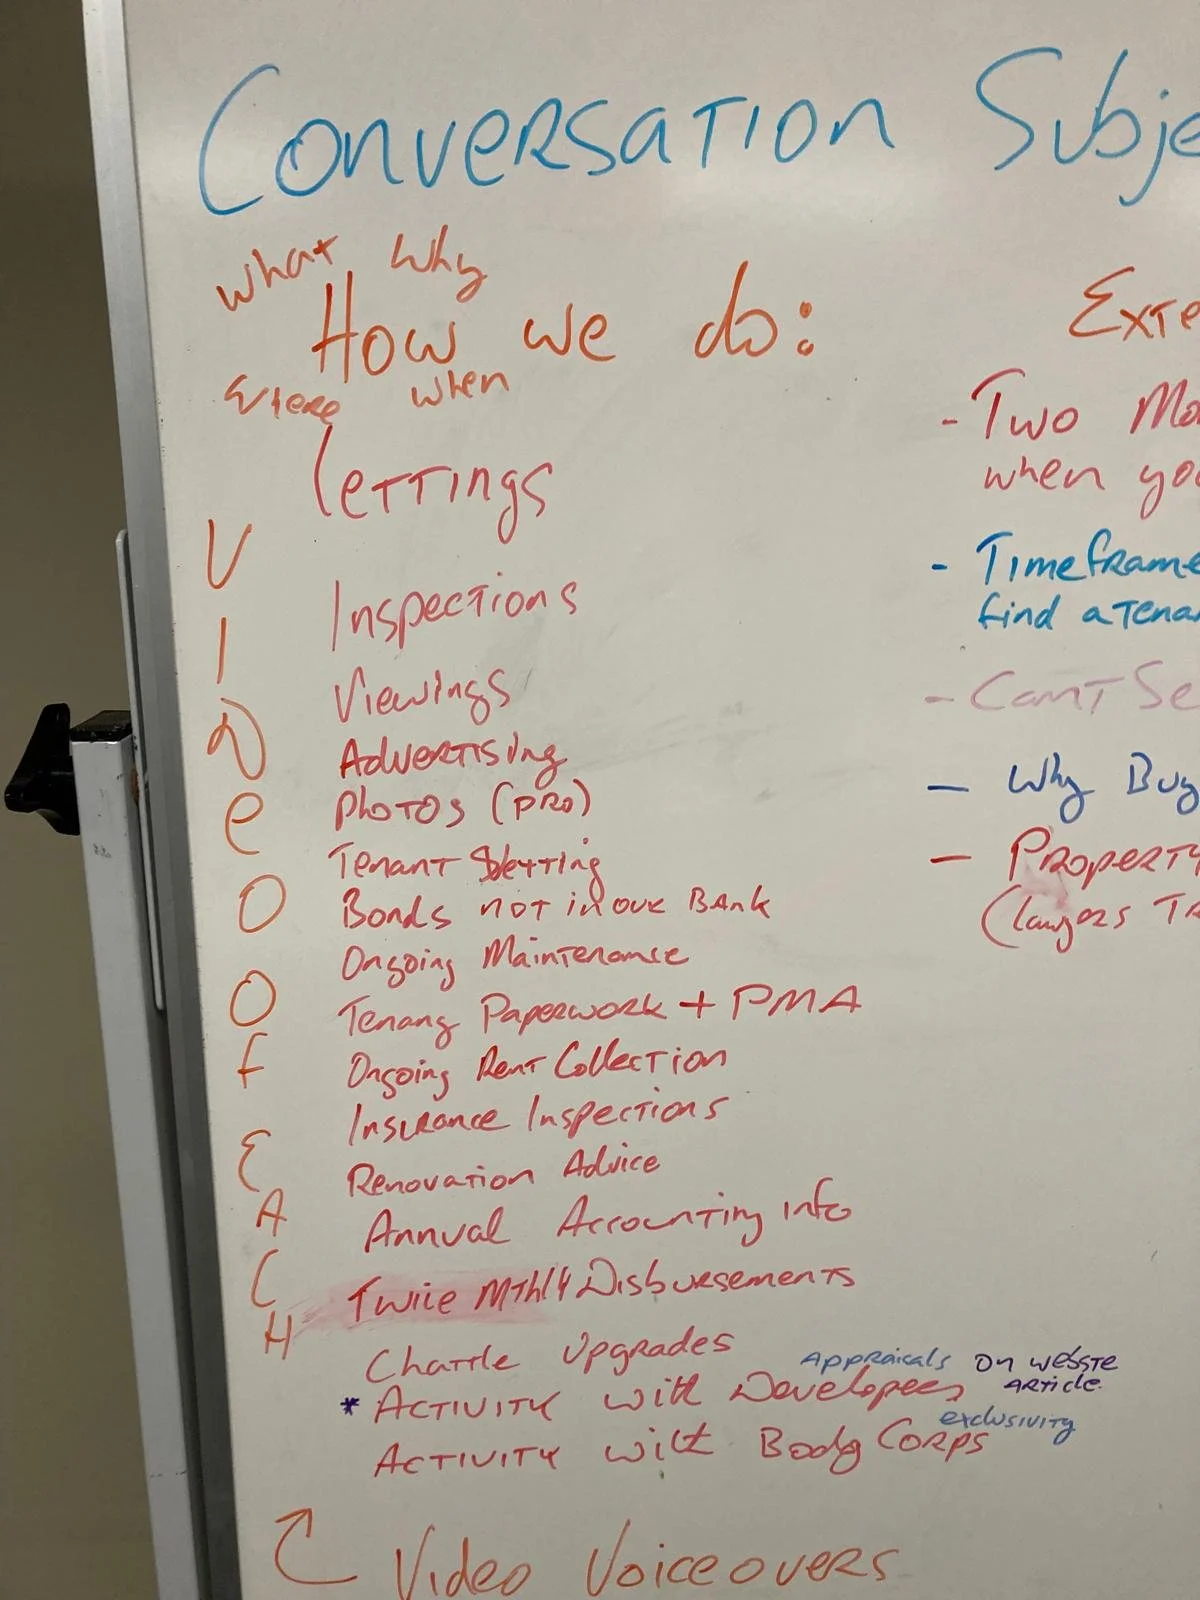 Conversation Subje
What Why
How we do:
Where when
Lettings
Inspections
Viewings
Advertising
Photos (pro)
Tenant Vetting
Bonds not in our Bank
Ongoing Maintenance
Tenancy Paperwork + PMA
Ongoing Rent Collection
Insurance Inspections
Renovation Advice
Annual Accounting info
Twice Mthly Disbursements
Chattle Upgrades
Appraisals on webste
* Activity with Developers article.
exclusivity
Activity with Body Corps
Video Voiceovers
VIDEO OF EACH
Exte
- Two Ma
when you
- Timeframe
find a tenan
- Can't Se
- Why Buy
- Property
(lawyers Tr